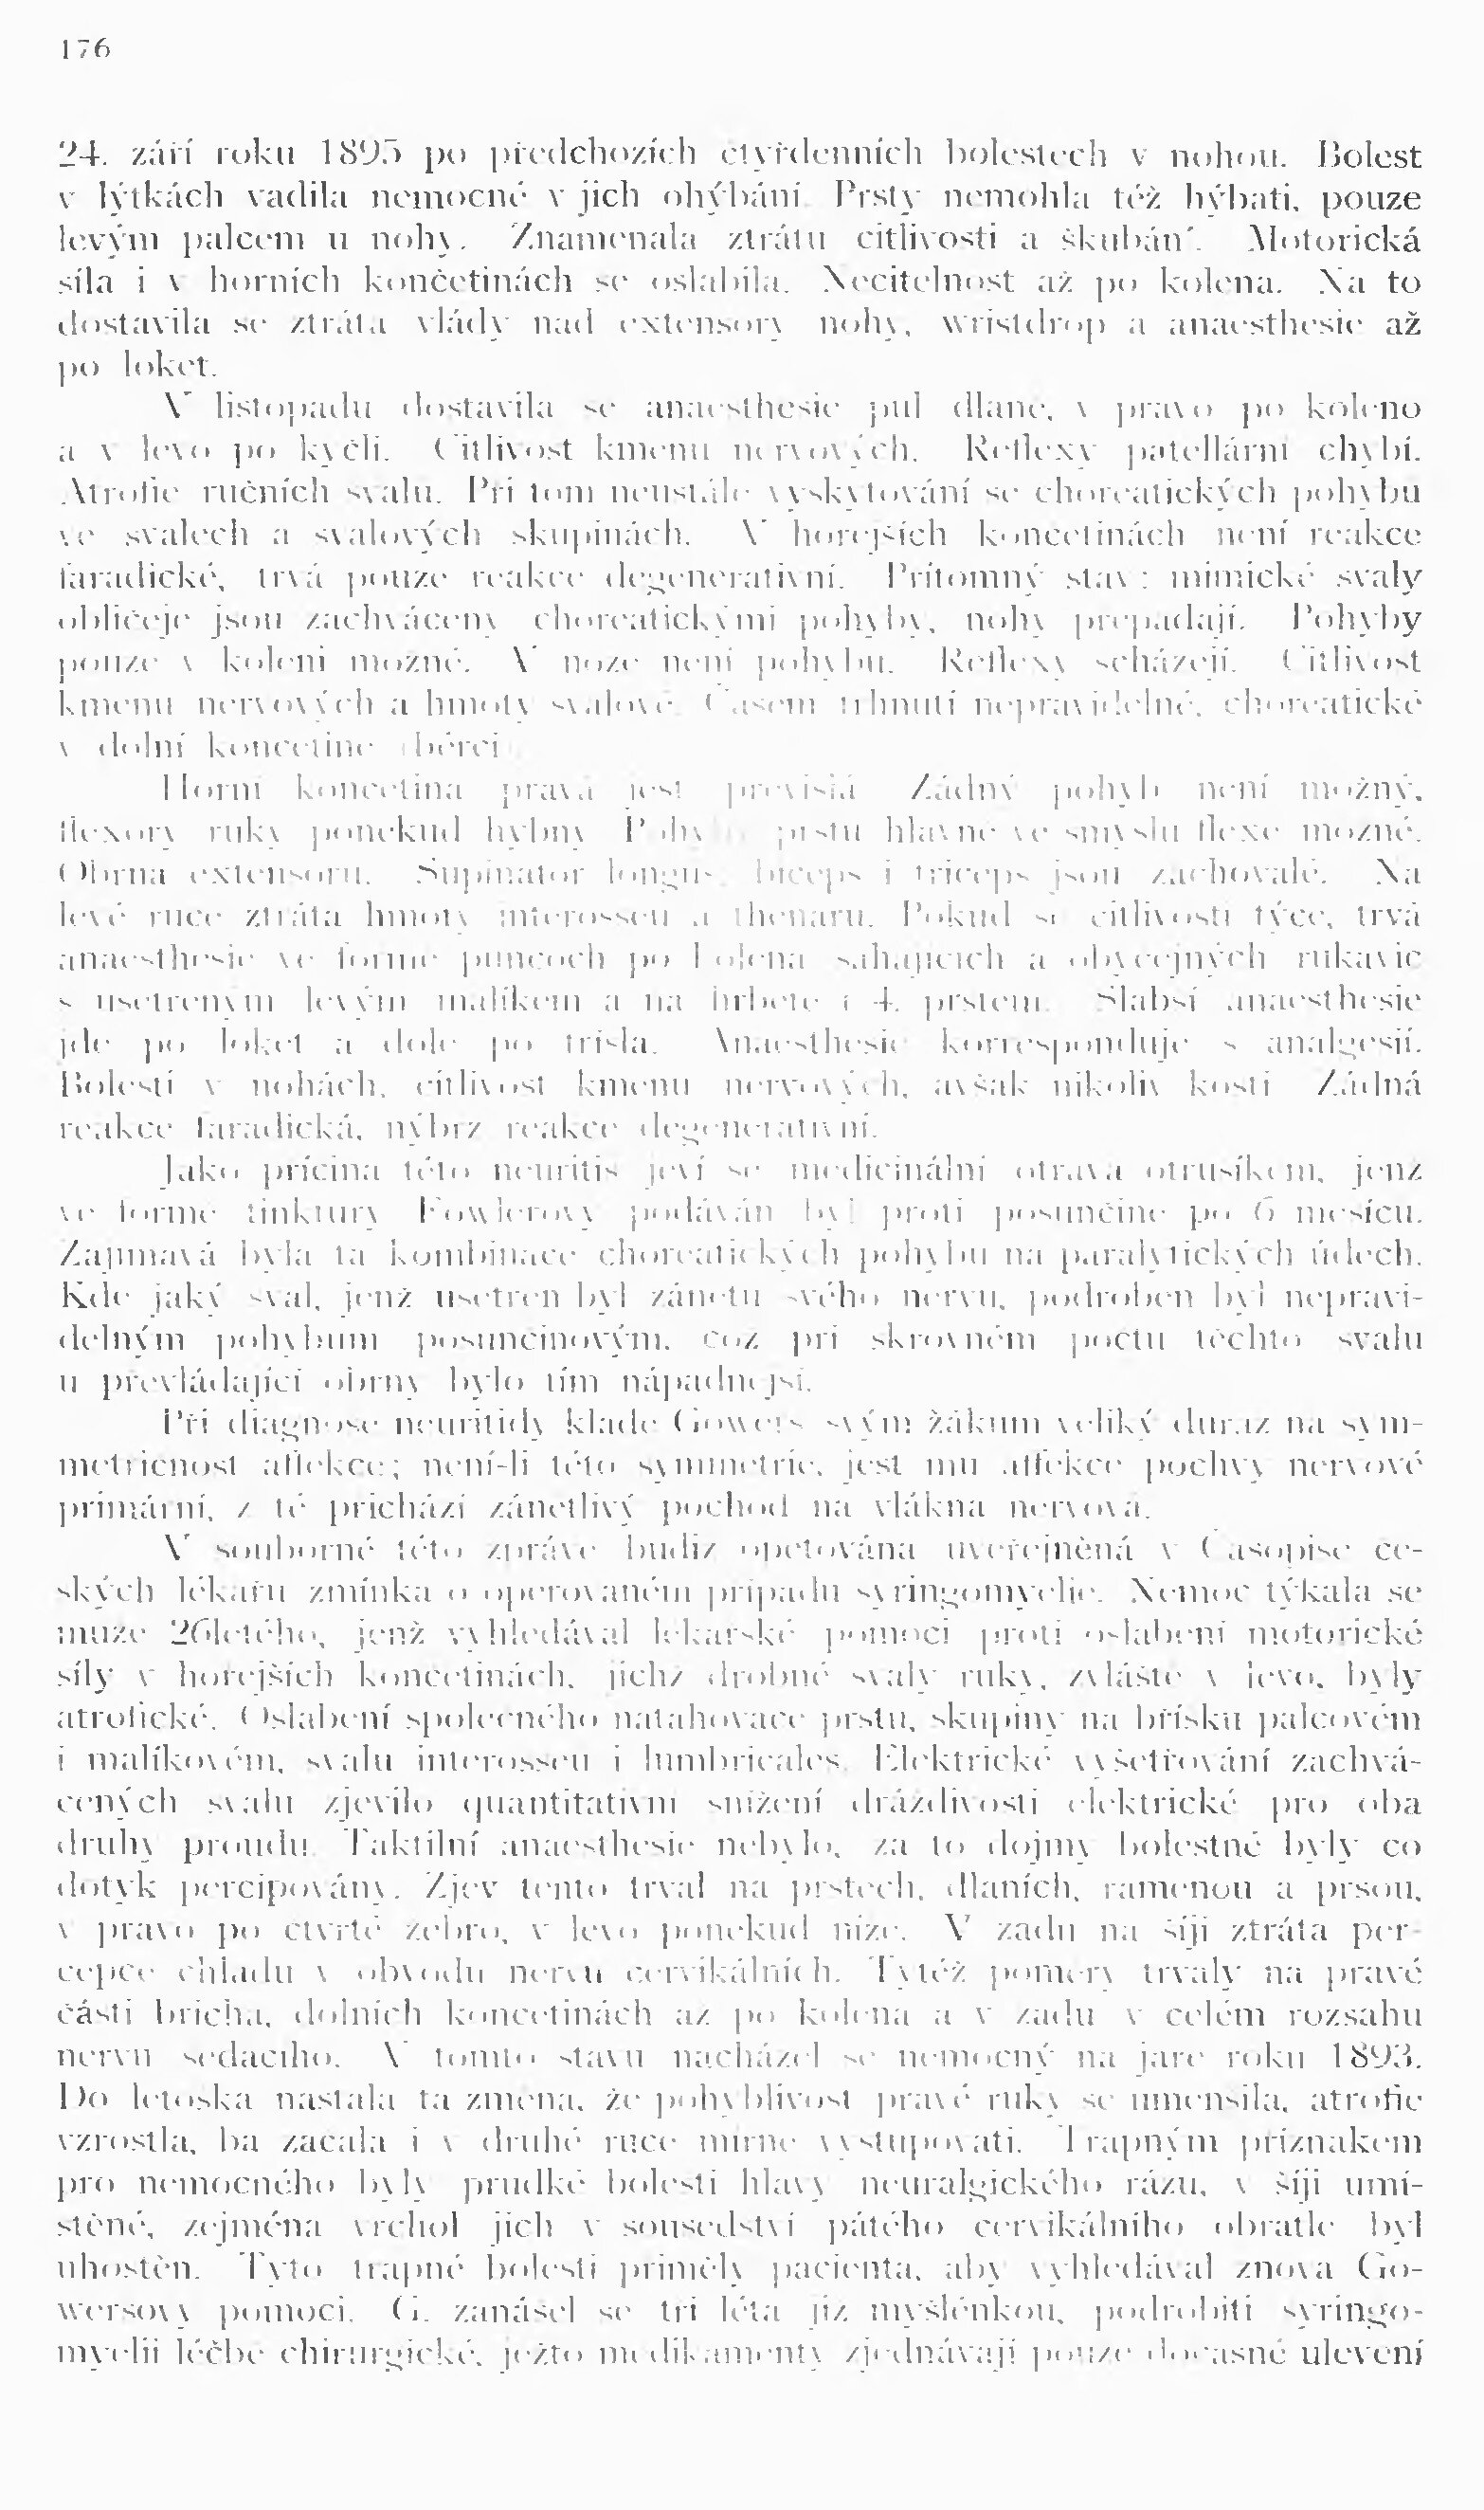 176
24. září roku 1895 po předchozích čtyřdenních bolestech v nohou. Bolest
v lýtkách vadila nemocné v jich ohýbání. Prsty nemohla též hýbati, pouze
levým palcem u nohy. Znamenala ztrátu citlivosti a škubání. Motorická
síla i v horních končetinách se oslabila. Necitelnost až po kolena. Na to
dostavila se ztráta vlády nad extensory nohy, wristdrop a anaesthesie až
po loket.
V listopadu dostavila se anaesthesie půl dlaně, v pravo po koleno
a v levo po kyčli. Citlivost kmenů nervových. Reflexy patellární chybí.
Atrofie ručních svalů. Při tom neustálé vyskytování se choreatických pohybů
ve svalech a svalových skupinách. V hořejších končetinách není reakce
faradické, trvá pouze reakce degenerativní. Přítomný stav: mimické svaly
obličeje jsou zachváceny choreatickými pohyby, nohy přepadají. Pohyby
pouze v koleni možné. V noze není pohybu. Reflexy scházejí. Citlivost
kmenů nervových a hmoty svalové. Časem trhnutí nepravidelné, choreatické
v dolní končetině (bérci).
Horní končetina pravá jest převislá. Žádný pohyb není možný,
flexory ruky poněkud hybny. Pohyby prstů hlavně ve smyslu flexe možné.
Obrna extensorů. Supinator longus, biceps i triceps jsou zachovalé. Na
levé ruce ztráta hmoty interosseů a thenaru. Pokud se citlivosti týče, trvá
anaesthesie ve formě punčoch po kolena sahajících a obyčejných rukavic
s ušetřeným levým malíkem a na hřbetě i 4. prstem. Slabší anaesthesie
jde po loket a dole po třísla. Anaesthesie korresponduje s analgesií.
Bolesti v nohách, citlivost kmenů nervových, avšak nikoliv kostí. Žádná
reakce faradická, nýbrž reakce degenerativní.
Jako příčina této neuritis jeví se medicinální otrava otrušíkem, jenž
ve formě tinktury Fowlerovy podáván byl proti posunčině po 6 měsíců.
Zajímavá byla ta kombinace choreatických pohybů na paralytických údech.
Kde jaký sval, jenž ušetřen byl zánětu svého nervu, podroben byl nepravi-
delným pohybům posunčinovým, což při skrovném počtu těchto svalů
u převládající obrny bylo tím nápadnější.
Při diagnose neuritidy klade Gowers svým žákům veliký důraz na sym-
metričnost affekce; není-li této symmetrie, jest mu affekce pochvy nervové
primární, z té přichází zánětlivý pochod na vlákna nervová.
V souborné této zprávě budiž opětována uveřejněná v Časopise če-
ských lékařů zmínka o operovaném případu syringomyelie. Nemoc týkala se
muže 26letého, jenž vyhledával lékařské pomoci proti oslabení motorické
síly v hořejších končetinách, jichž drobné svaly ruky, zvláště v levo, byly
atrofické. Oslabení společného natahovače prstů, skupiny na bříšku palcovém
i malíkovém, svalů interosseů i lumbricales. Elektrické vyšetřování zachvá-
cených svalů zjevilo quantitativní snížení dráždivosti elektrické pro oba
druhy proudů. Taktilní anaesthesie nebylo, za to dojmy bolestné byly co
dotyk percipovány. Zjev tento trval na prstech, dlaních, ramenou a prsou,
v pravo po čtvrté žebro, v levo poněkud níže. V zadu na šíji ztráta per-
cepce chladu v obvodu nervů cervikálních. Tytéž poměry trvaly na pravé
části břicha, dolních končetinách až po kolena a v zadu v celém rozsahu
nervu sedacího. V tomto stavu nacházel se nemocný na jaře roku 1893.
Do letoška nastala ta změna, že pohyblivost pravé ruky se umenšila, atrofie
vzrostla, ba začala i v druhé ruce mírně vystupovati. Trapným příznakem
pro nemocného byly prudké bolesti hlavy neuralgického rázu, v šíji umí-
stěné, zejména vrchol jich v sousedství pátého cervikálního obratle byl
uhostěn. Tyto trapné bolesti přiměly pacienta, aby vyhledával znova Go-
wersovy pomoci. G. zanášel se tři léta již myšlénkou, podrobiti syringo-
myelii léčbě chirurgické, ježto medikamenty zjednávají pouze dočasné ulevení